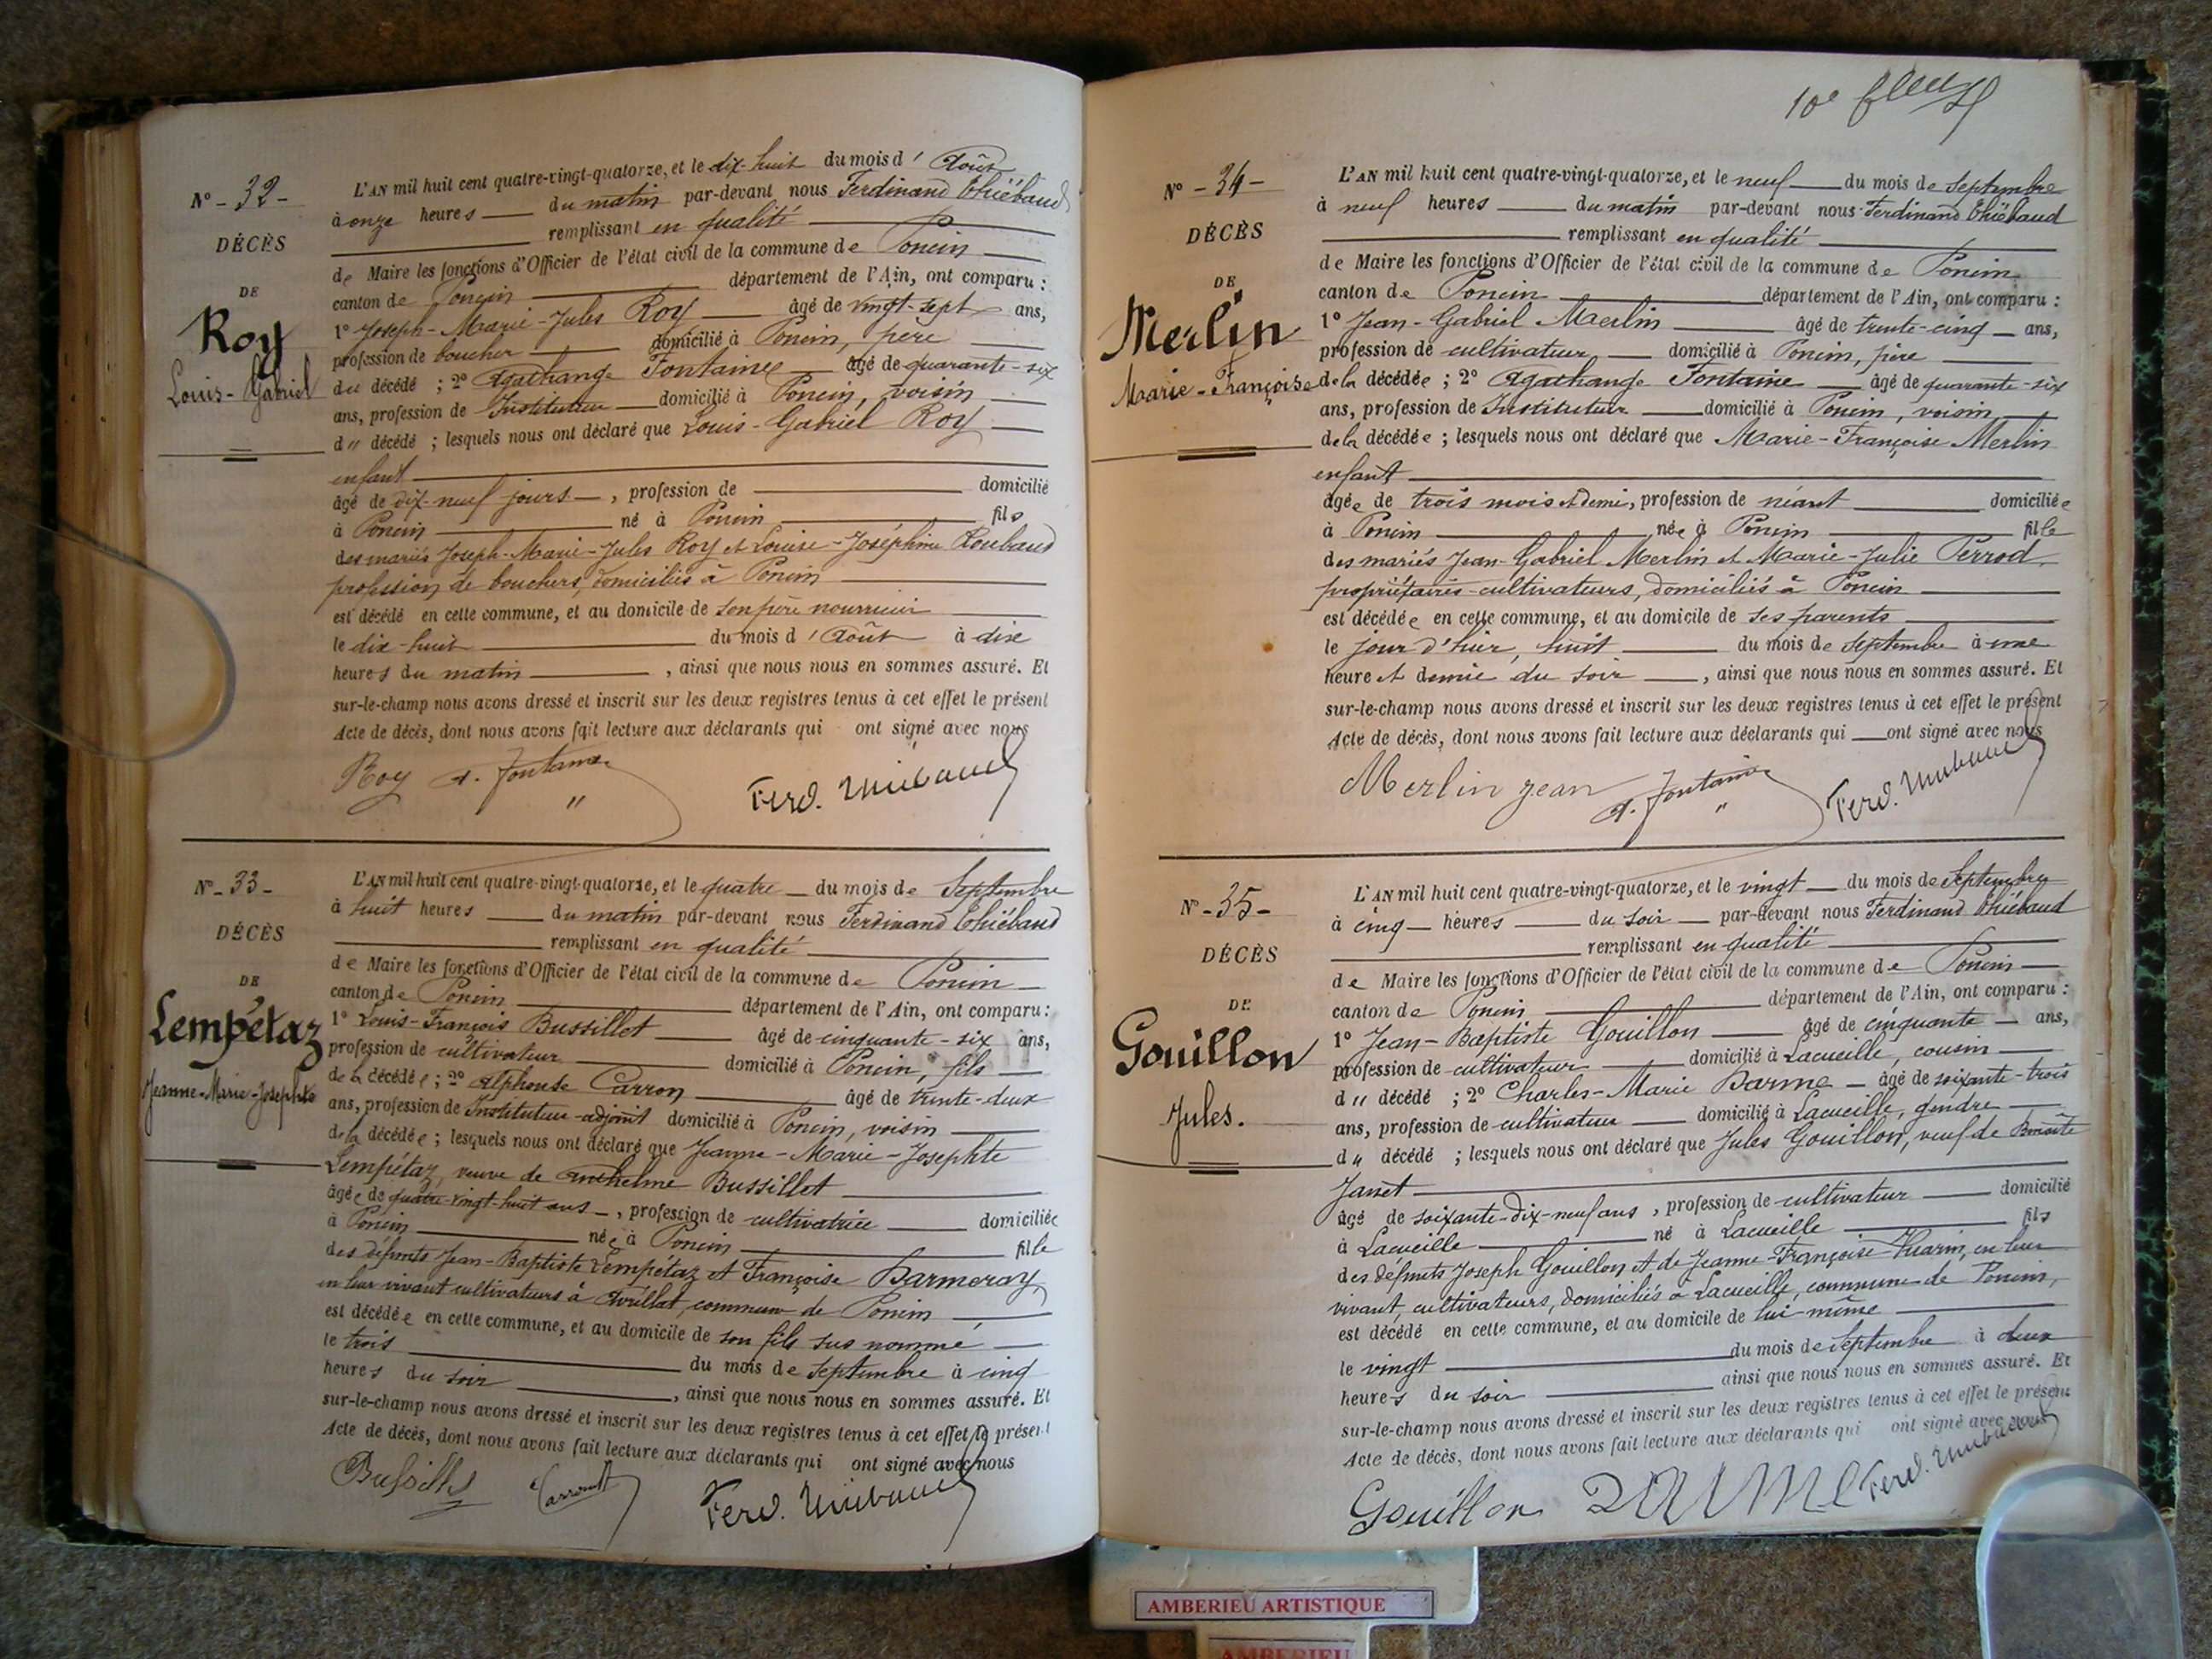 N° - 32 -
DÉCÈS
DE
Roy
Louis-Gabriel
L'AN mil huit cent quatre-vingt-quatorze, et le dix-huit du mois d'Août
à onze heures du matin par-devant nous Ferdinand Thiébaud
remplissant en qualité
de Maire les fonctions d'Officier de l'état civil de la commune de Poncin
canton de Poncin département de l'Ain, ont comparu :
1° Joseph-Marie-Jules Roy âgé de vingt-sept ans,
profession de boucher domicilié à Poncin, père
du décédé ; 2° Agathange Fontaine âgé de quarante-six
ans, profession de Instituteur domicilié à Poncin, voisin
du décédé ; lesquels nous ont déclaré que Louis-Gabriel Roy
enfant
âgé de dix-neuf jours, profession de domicilié
à Poncin né à Poncin fils
des mariés Joseph-Marie-Jules Roy et Louise-Joséphine Roubaud
profession de bouchers, domiciliés à Poncin
est décédé en cette commune, et au domicile de son père nourricier
le dix-huit du mois d'Août à dix
heures du matin, ainsi que nous nous en sommes assuré. Et
sur-le-champ nous avons dressé et inscrit sur les deux registres tenus à cet effet le présent
Acte de décès, dont nous avons fait lecture aux déclarants qui ont signé avec nous
Roy A. Fontaine Ferd. Thiébaud
N° - 33 -
DÉCÈS
DE
Lempétaz
Jeanne-Marie-Josephte
L'AN mil huit cent quatre-vingt-quatorze, et le quatre du mois de Septembre
à huit heures du matin par-devant nous Ferdinand Thiébaud
remplissant en qualité
de Maire les fonctions d'Officier de l'état civil de la commune de Poncin
canton de Poncin département de l'Ain, ont comparu :
1° Louis-François Bussillet âgé de cinquante-six ans,
profession de cultivateur domicilié à Poncin, fils
de la décédée ; 2° Alphonse Carron âgé de trente-deux
ans, profession de Instituteur-adjoint domicilié à Poncin, voisin
de la décédée ; lesquels nous ont déclaré que Jeanne-Marie-Josephte
Lempétaz, veuve de Anthelme Bussillet
âgée de quatre-vingt-huit ans, profession de cultivatrice domiciliée
à Poncin née à Poncin fille
des défunts Jean-Baptiste Lempétaz et Françoise Darmeray,
en leur vivant cultivateurs à Avrillat, commune de Poncin
est décédée en cette commune, et au domicile de son fils sus nommé
le trois du mois de Septembre à cinq
heures du soir, ainsi que nous nous en sommes assuré. Et
sur-le-champ nous avons dressé et inscrit sur les deux registres tenus à cet effet le présent
Acte de décès, dont nous avons fait lecture aux déclarants qui ont signé avec nous
Bussillet Carron Ferd. Thiébaud
10e
N° - 34 -
DÉCÈS
DE
Merlin
Marie-Françoise
L'AN mil huit cent quatre-vingt-quatorze, et le neuf du mois de Septembre
à neuf heures du matin par-devant nous Ferdinand Thiébaud
remplissant en qualité
de Maire les fonctions d'Officier de l'état civil de la commune de Poncin
canton de Poncin département de l'Ain, ont comparu :
1° Jean-Gabriel Merlin âgé de trente-cinq ans,
profession de cultivateur domicilié à Poncin, père
de la décédée ; 2° Agathange Fontaine âgé de quarante-six
ans, profession de Instituteur domicilié à Poncin, voisin
de la décédée ; lesquels nous ont déclaré que Marie-Françoise Merlin
enfant
âgée de trois mois et demi, profession de néant domiciliée
à Poncin née à Poncin fille
des mariés Jean-Gabriel Merlin et Marie-Julie Perrod,
propriétaires-cultivateurs, domiciliés à Poncin
est décédée en cette commune, et au domicile de ses parents
le jour d'hier, huit du mois de Septembre à une
heure et demie du soir, ainsi que nous nous en sommes assuré. Et
sur-le-champ nous avons dressé et inscrit sur les deux registres tenus à cet effet le présent
Acte de décès, dont nous avons fait lecture aux déclarants qui ont signé avec nous
Merlin jean A. Fontaine Ferd. Thiébaud
N° - 35 -
DÉCÈS
DE
Gouillon
Jules.
L'AN mil huit cent quatre-vingt-quatorze, et le vingt du mois de Septembre
à cinq heures du soir par-devant nous Ferdinand Thiébaud
remplissant en qualité
de Maire les fonctions d'Officier de l'état civil de la commune de Poncin
canton de Poncin département de l'Ain, ont comparu :
1° Jean-Baptiste Gouillon âgé de cinquante ans,
profession de cultivateur domicilié à Lacueille, cousin
du décédé ; 2° Charles-Marie Darme âgé de soixante-trois
ans, profession de cultivateur domicilié à Lacueille, gendre
du décédé ; lesquels nous ont déclaré que Jules Gouillon, veuf de Benoîte
Janet
âgé de soixante-dix-neuf ans, profession de cultivateur domicilié
à Lacueille né à Lacueille fils
des défunts Joseph Gouillon et de Jeanne-Françoise Thuarin, en leur
vivant, cultivateurs, domiciliés à Lacueille, commune de Poncin,
est décédé en cette commune, et au domicile de lui-même
le vingt du mois de Septembre à deux
heures du soir ainsi que nous nous en sommes assuré. Et
sur-le-champ nous avons dressé et inscrit sur les deux registres tenus à cet effet le présent
Acte de décès, dont nous avons fait lecture aux déclarants qui ont signé avec nous
Gouillon DARME Ferd. Thiébaud
AMBERIEU ARTISTIQUE
AMBERIEU